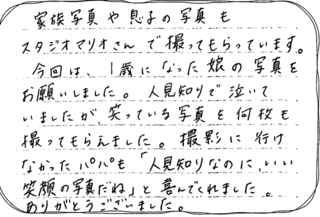 家族写真や息子の写真も
スタジオマリオさんで撮ってもらっています。
今回は、1歳になった娘の写真を
お願いしました。人見知りで泣いて
いましたが笑っている写真を何枚も
撮ってもらえました。撮影に行け
なかったパパも「人見知りなのに、いい
笑顔の写真だね」と喜んでくれました。
ありがとうございました。